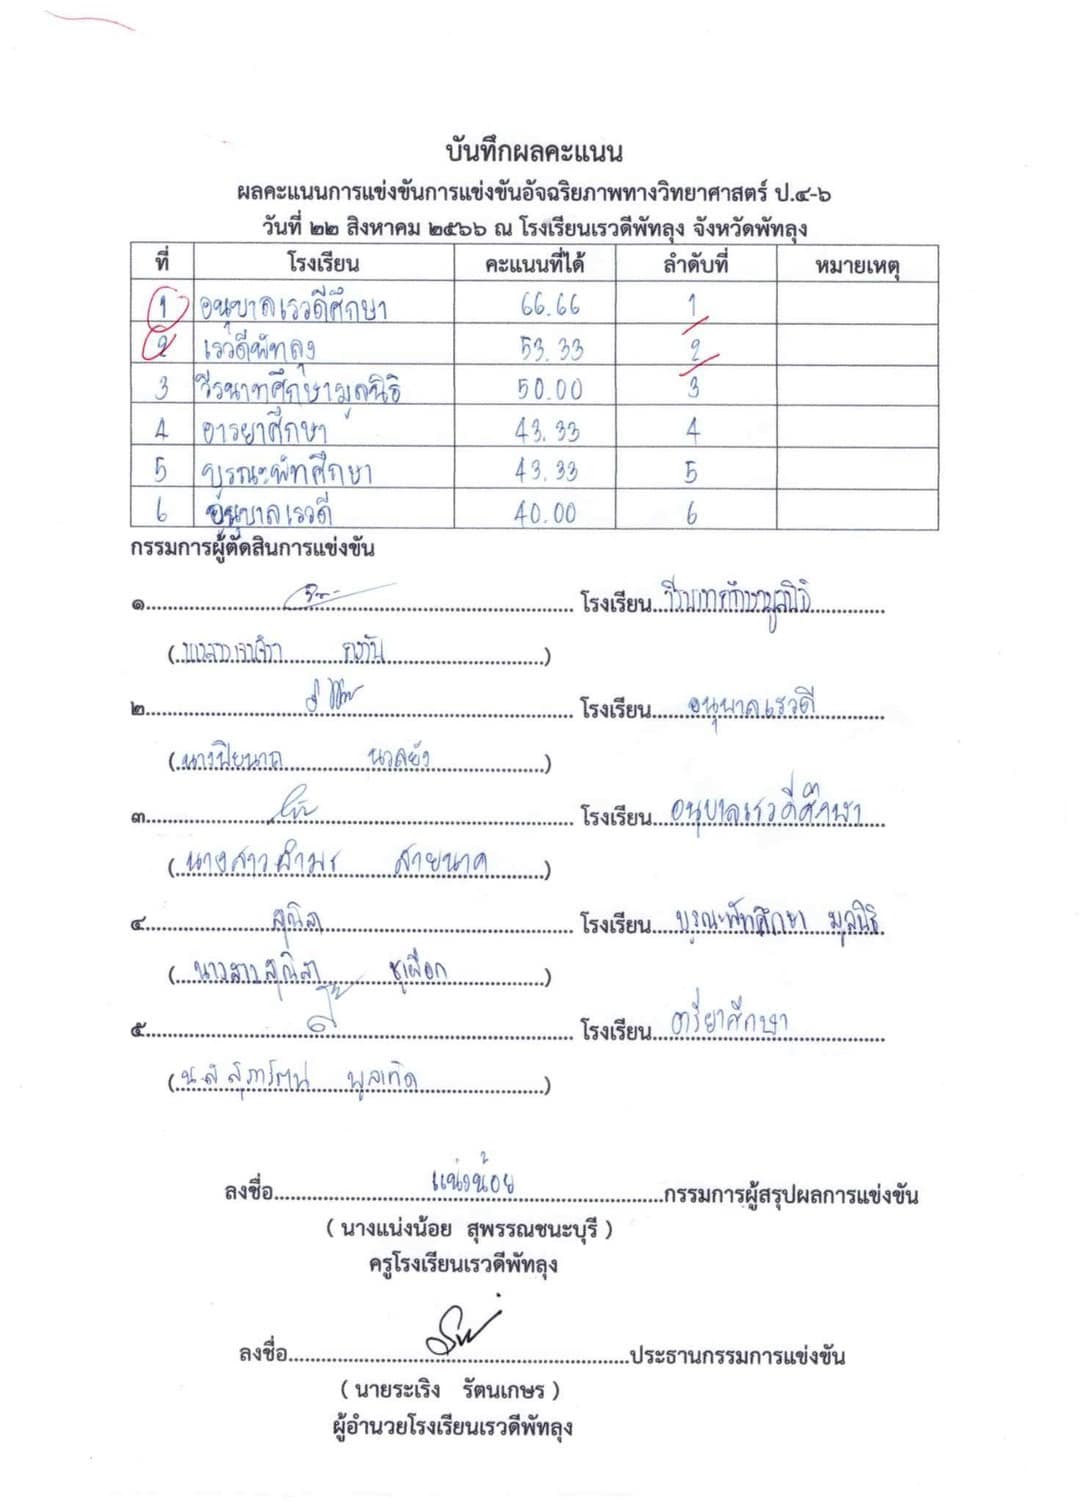 บันทึกผลคะแนน
ผลคะแนนการแข่งขันการแข่งขันอัจฉริยภาพทางวิทยาศาสตร์ ป.๔-๖
วันที่ ๒๒ สิงหาคม ๒๕๖๖ ณ โรงเรียนเรวดีพัทลุง จังหวัดพัทลุง
ที่ โรงเรียน คะแนนที่ได้ ลำดับที่ หมายเหตุ
1 อนุบาลเรวดีศึกษา 66.66 1
2 เรวดีพัทลุง 53.33 2
3 วีรนาทศึกษามูลนิธิ 50.00 3
4 อารยาศึกษา 43.33 4
5 บูรณะพัทศึกษา 43.33 5
6 อนุบาลเรวดี 40.00 6
กรรมการผู้ตัดสินการแข่งขัน
๑. โรงเรียน วีรนาทศึกษามูลนิธิ
๒. โรงเรียน อนุบาลเรวดี
(นางปิยนาถ นวลยัง)
๓. โรงเรียน อนุบาลเรวดีศึกษา
(นางสาว สายนาค)
๔. สุณิสา โรงเรียน บูรณะพัทศึกษา มูลนิธิ
(นางสาวสุณิสา ชูเผือก)
๕. โรงเรียน
(น.ส สุภารัตน์ พูลเกิด)
ลงชื่อ แน่งน้อย กรรมการผู้สรุปผลการแข่งขัน
( นางแน่งน้อย สุพรรณชนะบุรี )
ครูโรงเรียนเรวดีพัทลุง
ลงชื่อ ประธานกรรมการแข่งขัน
( นายระเริง รัตนเกษร )
ผู้อำนวยโรงเรียนเรวดีพัทลุง